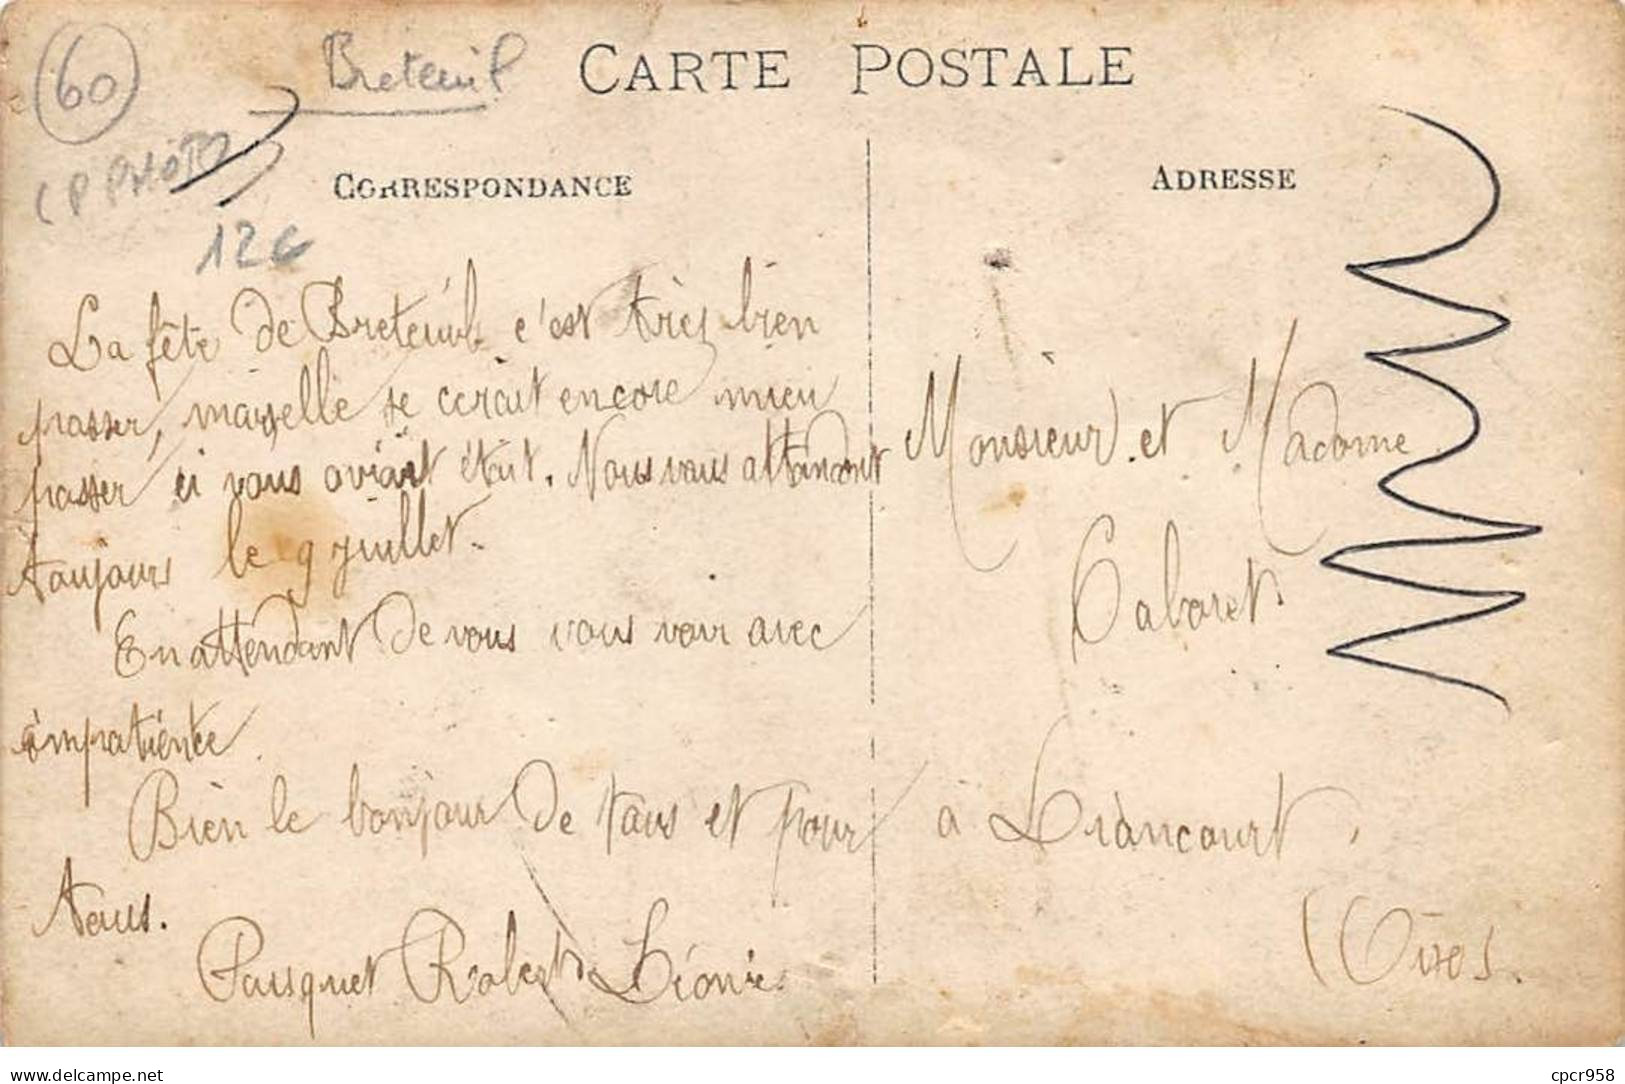 60
Breteuil
CARTE POSTALE
CP PHOTO
12€
CORRESPONDANCE
ADRESSE
La fête de Breteuil c'est triez bien
passer, maiselle se cerait encore mieu
passer ci vous aviait était. Nous vous attandont
toujours le 9 juillet.
En attendant de vous vous voir avec
impatiente.
Bien le bonjour de tous et pour
tous.
Pasquet Robert Léonie.
Monsieur et Madame
Cabaret.
à Liancourt,
(Oise).
www.delcampe.net
cpcr958